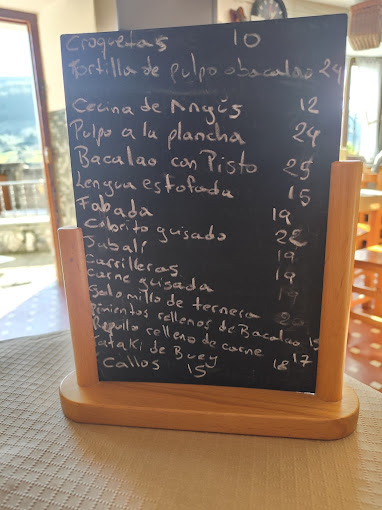 Croquetas 10
Tortilla de pulpo o bacalao 24
Cecina de Angus 12
Pulpo a la plancha 24
Bacalao con Pisto 25
Lengua estofada 15
Fabada 19
Cabrito guisado 22
Jabalí 19
Carrilleras 19
Carne guisada 19
Solomillo de ternera
Pimientos rellenos de Bacalao 15
Repollo relleno de carne 17
Tataki de Buey 18
Callos 15